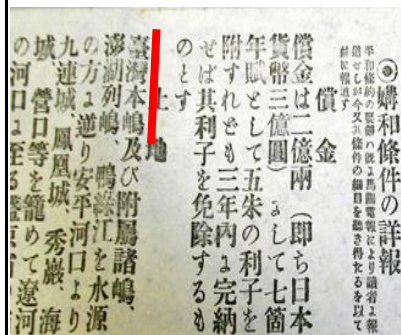 ◎講和條件の詳報
平和條約の要領は既に馬關電報により讀者に報
道せしが今又其條件の細目を聽き得たるを以て
玆に報道す
償金
償金は二億兩(即ち日本
貨幣三億圓)にして七箇
年賦として五朱の利子を
附すれども三年內に完納
せば其利子を免除するも
のとす
土地
臺灣本嶋及び附屬諸嶋、
澎湖列嶋、鴨綠江を水源
の方に遡り安平河口より
九連城、鳳凰城、秀巖、海
城、營口等を籠めて遼河
の河口に至る